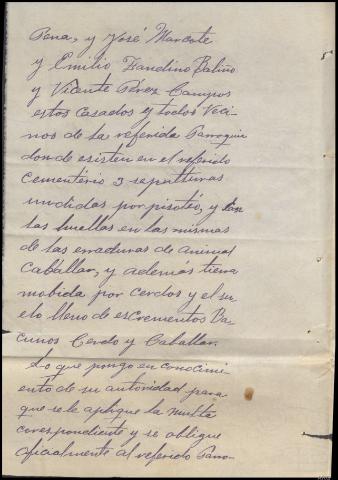 Pena, y José Marcote
y Emilio Fandino Baliño
y Vicente Pérez Campos
estos casados y todos Veci
nos de la referida Parroquia
donde esisten en el referido
Cementério 3 sepultturas
undidas por pisotéo, y
las huellas en las mismas
de las erraduras de animal
Caballar, y además tierra
mobida por cerdos y el su
elo lleno de escrementos Ba
cunos Cerdo y Caballar.
Lo que pongo en conocimi
ento de su autoridad para
que se le aplique la multa
corespondiente y se obligue
oficialmente al referido Parro-